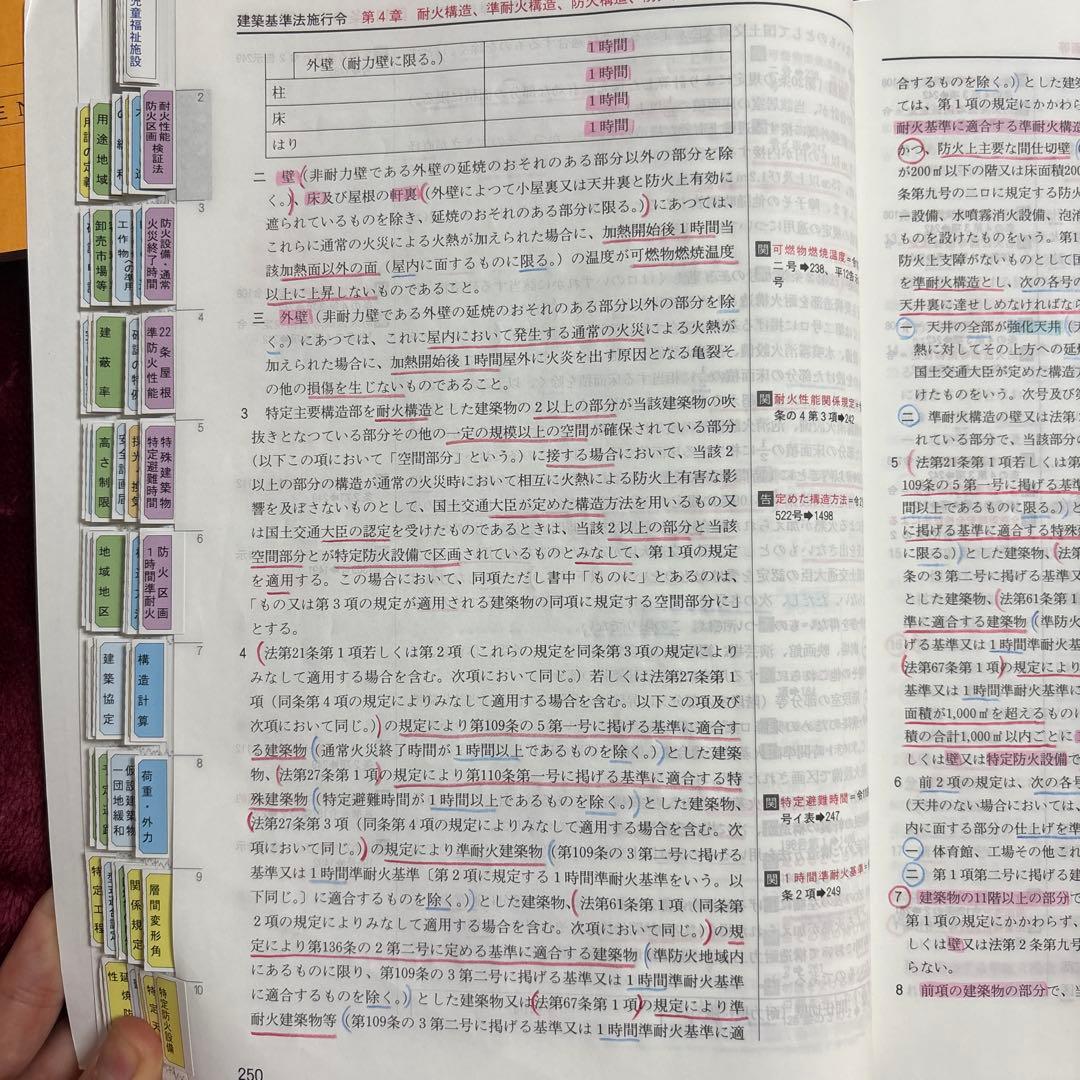 建築基準法施行令 第4章 耐火構造、準耐火構造、防火構造、
外壁(耐力壁に限る。) 1時間
柱 1時間
床 1時間
はり 1時間
二 壁(非耐力壁である外壁の延焼のおそれのある部分以外の部分を除
く。)、床及び屋根の軒裏(外壁によつて小屋裏又は天井裏と防火上有効に
遮られているものを除き、延焼のおそれのある部分に限る。)にあつては、
これらに通常の火災による火熱が加えられた場合に、加熱開始後1時間当
該加熱面以外の面(屋内に面するものに限る。)の温度が可燃物燃焼温度
以上に上昇しないものであること。
三 外壁(非耐力壁である外壁の延焼のおそれのある部分以外の部分を除
く。)にあつては、これに屋内において発生する通常の火災による火熱が
加えられた場合に、加熱開始後1時間屋外に火炎を出す原因となる亀裂そ
の他の損傷を生じないものであること。
3 特定主要構造部を耐火構造とした建築物の2以上の部分が当該建築物の吹
抜きとなつている部分その他の一定の規模以上の空間が確保されている部分
(以下この項において「空間部分」という。)に接する場合において、当該2
以上の部分の構造が通常の火災時において相互に火熱による防火上有害な影
響を及ぼさないものとして、国土交通大臣が定めた構造方法を用いるもの又
は国土交通大臣の認定を受けたものであるときは、当該2以上の部分と当該
空間部分とが特定防火設備で区画されているものとみなして、第1項の規定
を適用する。この場合において、同項ただし書中「ものに」とあるのは、
「もの又は第3項の規定が適用される建築物の同項に規定する空間部分に」
とする。
4 (法第21条第1項若しくは第2項(これらの規定を同条第3項の規定により
みなして適用する場合を含む。次項において同じ。)若しくは法第27条第1
項(同条第4項の規定によりみなして適用する場合を含む。以下この項及び
次項において同じ。))の規定により第109条の5第一号に掲げる基準に適合す
る建築物(通常火災終了時間が1時間以上であるものを除く。)とした建築
物、(法第27条第1項)の規定により第110条第一号に掲げる基準に適合する特
殊建築物(特定避難時間が1時間以上であるものを除く。)とした建築物、
(法第27条第3項(同条第4項の規定によりみなして適用する場合を含む。次
項において同じ。))の規定により準耐火建築物(第109条の3第二号に掲げる
基準又は1時間準耐火基準〔第2項に規定する1時間準耐火基準をいう。以
下同じ。〕に適合するものを除く。)とした建築物、(法第61条第1項(同条第
2項の規定によりみなして適用する場合を含む。次項において同じ。))の規
定により第136条の2第二号に定める基準に適合する建築物(準防火地域内
にあるものに限り、第109条の3第二号に掲げる基準又は1時間準耐火基準
に適合するものを除く。)とした建築物又は(法第67条第1項)の規定により準
耐火建築物等(第109条の3第二号に掲げる基準又は1時間準耐火基準に適
250
関 可燃物燃焼温度=
二号➡238、平12告
号
関 耐火性能関係規定=
条の4第3項➡242
告 定めた構造方法=
522号➡1498
関 特定避難時間=
号イ表➡247
関 1時間準耐火基準=
条2項➡249
児童福祉施設
2
耐火性能検証法
防火区画
用途地域
用語の定義
3
防火設備・通常
火災終了時間
工作物への準用
卸売市場等
4
22条屋根
準防火性能
建蔽率
5
特殊建築物
特定避難時間
採光・換気
高さ制限
6
防火区画
1時間準耐火
地域地区
7
構造計算
建築協定
8
荷重・外力
仮設建築物
一団地緩和
9
層間変形角
関係規定
特定工程
10
特定防火設備
合するものを除く。)とした建築
ては、第1項の規定にかかわら
耐火基準に適合する準耐火構造
かつ、防火上主要な間仕切壁
が200㎡以下の階又は床面積200
条第九号の二ロに規定する防火
ー設備、水噴霧消火設備、泡消
ものを設けたものをいう。第1
防火上支障がないものとして国
を準耐火構造とし、次の各号の
天井裏に達せしめなければなら
一 天井の全部が強化天井
熱に対してその上方への延焼
国土交通大臣が定めた構造
けたものをいう。次号及び第
二 準耐火構造の壁又は法第
れている部分で、当該部分の
5 (法第21条第1項若しくは第
109条の5第一号に掲げる基準
間以上であるものに限る。)と
に掲げる基準に適合する特殊
に限る。)とした建築物、(法第
条の3第二号に掲げる基準又
とした建築物、(法第61条第1
準に適合する建築物(準防火
げる基準又は1時間準耐火基
(法第67条第1項)の規定により
基準又は1時間準耐火基準に
面積が1,000㎡を超えるものに
積の合計1,000㎡以内ごとに
しくは壁又は特定防火設備で
6 前2項の規定は、次の各号
(天井のない場合においては、
内に面する部分の仕上げを準
一 体育館、工場その他これ
二 第1項第二号に掲げる建
7 建築物の11階以上の部分で
第1項の規定にかかわらず、
しくは壁又は法第2条第九号
らない。
8 前項の建築物の部分で、当